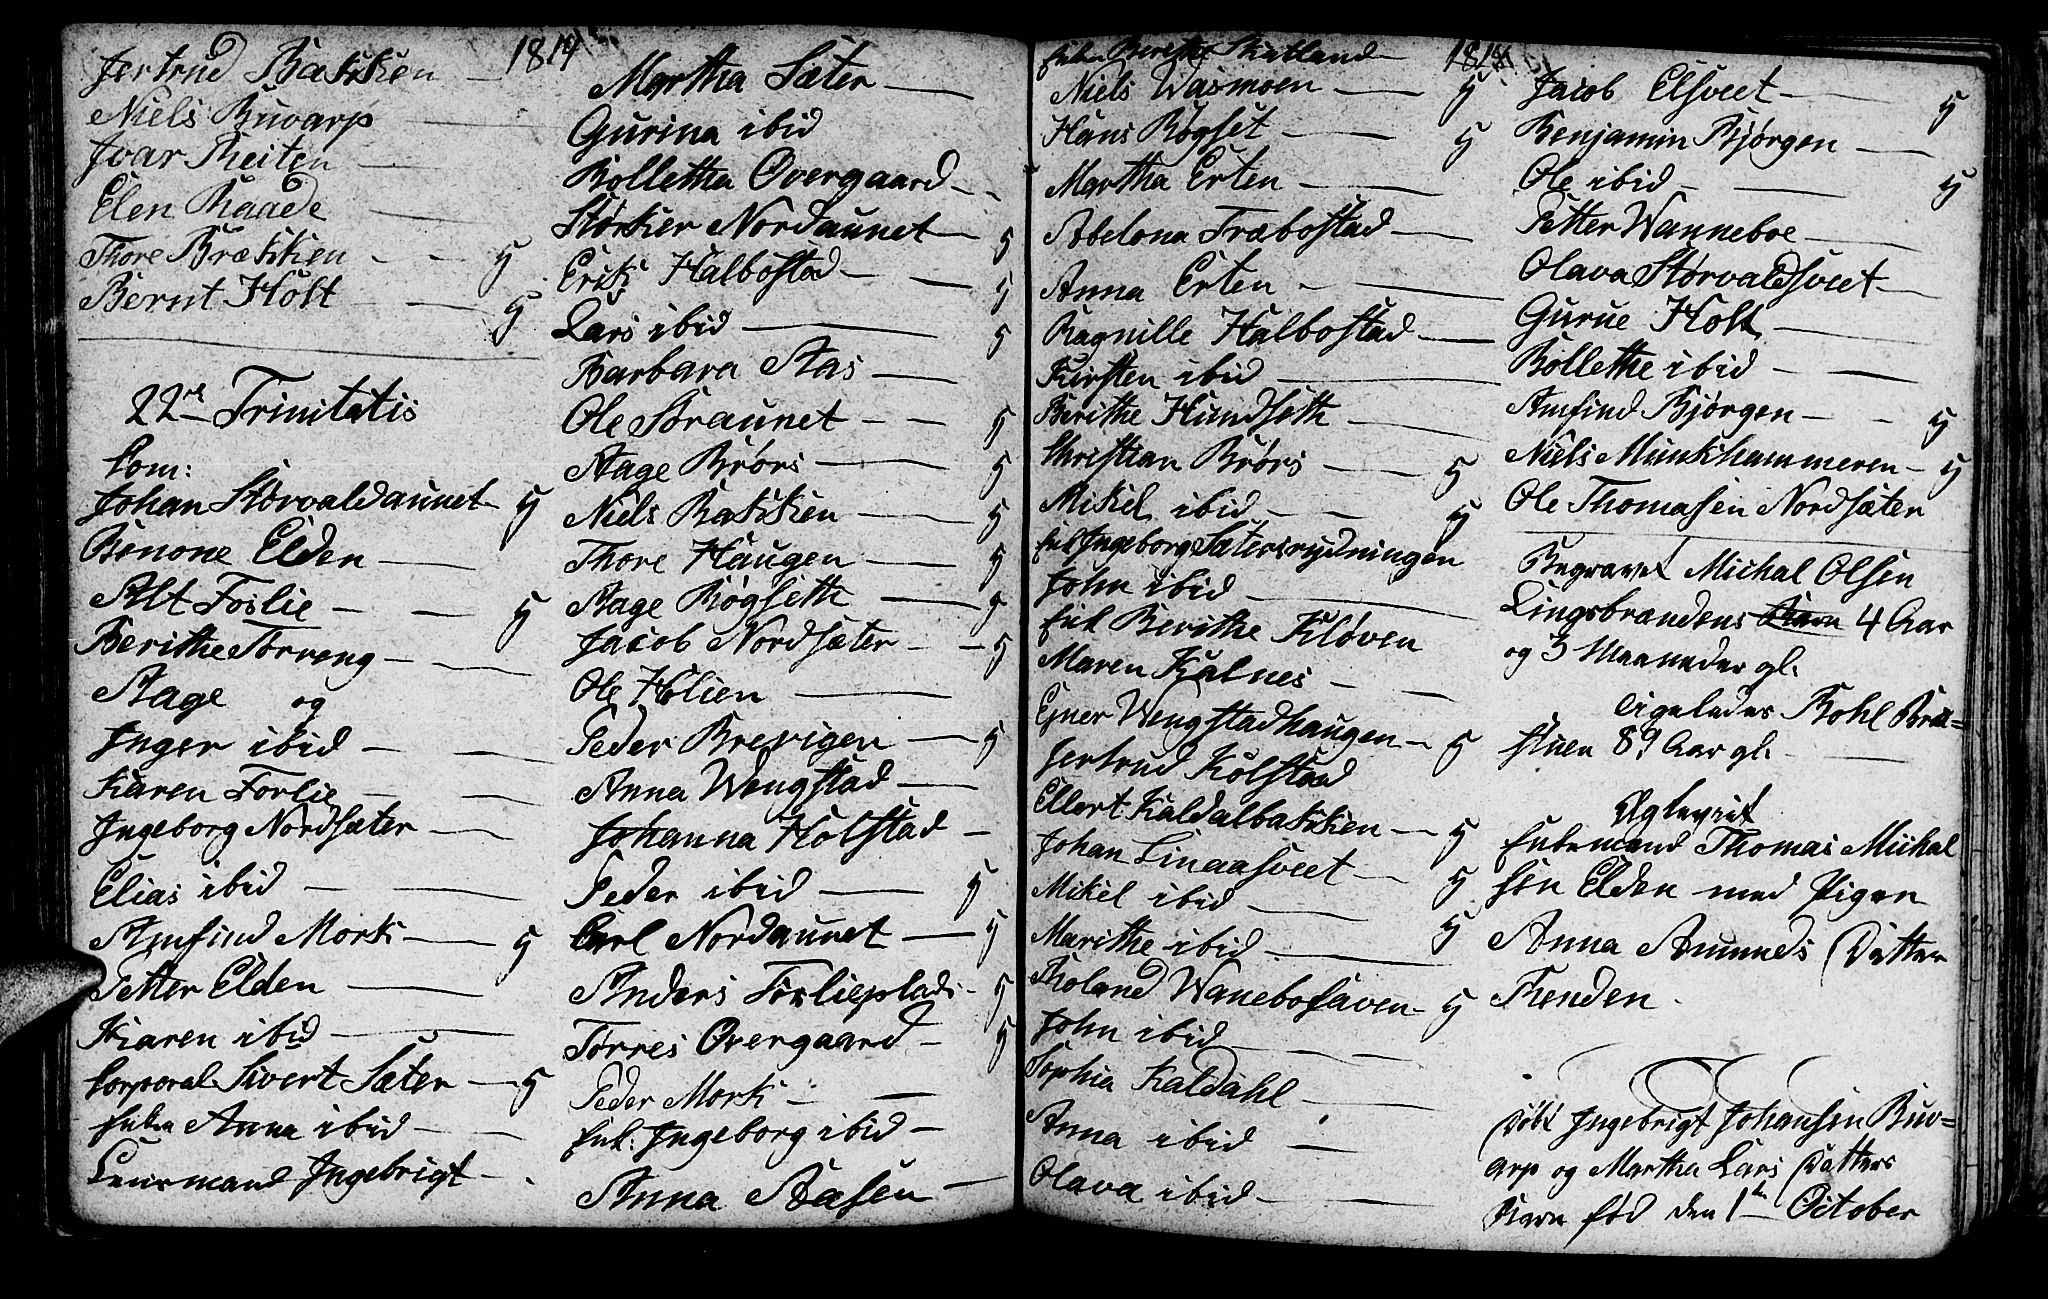 1814
Jertrud Bakken
Niels Buvarp
Ivar Reiten
Elen Raade
Thore Brækken 5
Bernt Holt 5
22de Trinitatis
Com:
Johan Størvaldaunet 5
Benone Elden
Alt Forlie 5
Berithe Torreng
Aage og
Inger ibid
Karen Forlie
Ingeborg Nordsæter
Elias ibid
Arnfind Mork 5
Petter Elden
Karen ibid
Corporal Sivert Sæter 5
Enken Anna ibid
Lensmand Ingebrigt
Martha Sæter
Gurina ibid
Bolletha Overgaard
Størker Nordaunet 5
Erik Halbostad 5
Lars ibid 5
Barbara Aas
Ole Straunet 5
Aage Brørs 5
Niels Bakken 5
Thore Haugen 5
Aage Røgseth 5
Jacob Nordsæter 5
Ole Holien
Peder Brevigen 5
Anna Wengstad
Johanna Holstad
Peder ibid 5
Carl Nordaunet 5
Anders Forlieplads 5
Torres Overgaard 5
Peder Mork
Enk. Ingeborg ibid
Anna Aasen
1814
Enken Berithe Skatland
Niels Wasmoen 5
Hans Røgset 5
Martha Erten
Abelona Træbostad
Anna Erten
Ragnille Halbostad
Kirsten ibid
Berithe Hundseth
Christian Brørs 5
Mikel ibid 5
Enk Ingeborg Sætersrydningen
John ibid
Enk Berithe Kløven
Maren Kalnes
Ejner Wengstadhaugen 5
Jertrud Kolstad
Ellert Kaldalbakken 5
Johan Linaasveet 5
Mikel ibid 5
Marithe ibid
Roland Wanebosaven 5
John ibid
Sophia Kaldahl
Anna ibid
Olava ibid
Jacob Elsveet 5
Benjamin Bjørgen
Ole ibid 5
Petter Wanneboe
Olava Størvaldsveet
Gurue Holt
Bollethe ibid
Arnfind Bjørgen 5
Niels Munkhammeren 5
Ole Thomasen Nordsæter
Begravet Michal Olsen
Lingsbrændens Barn 4 Aar
og 3 Maaneder gl.
Ligeledes Bohl Bræ=
stuen 89 Aar gl.
Ægteviet
Enkemand Thomas Mickal
sen Elden med Pigen
Anna Amunds Datter
Tenden
Døbt Ingebrigt Johansen Buv=
arp og Martha Lars Datters
Barn fød den 1te October